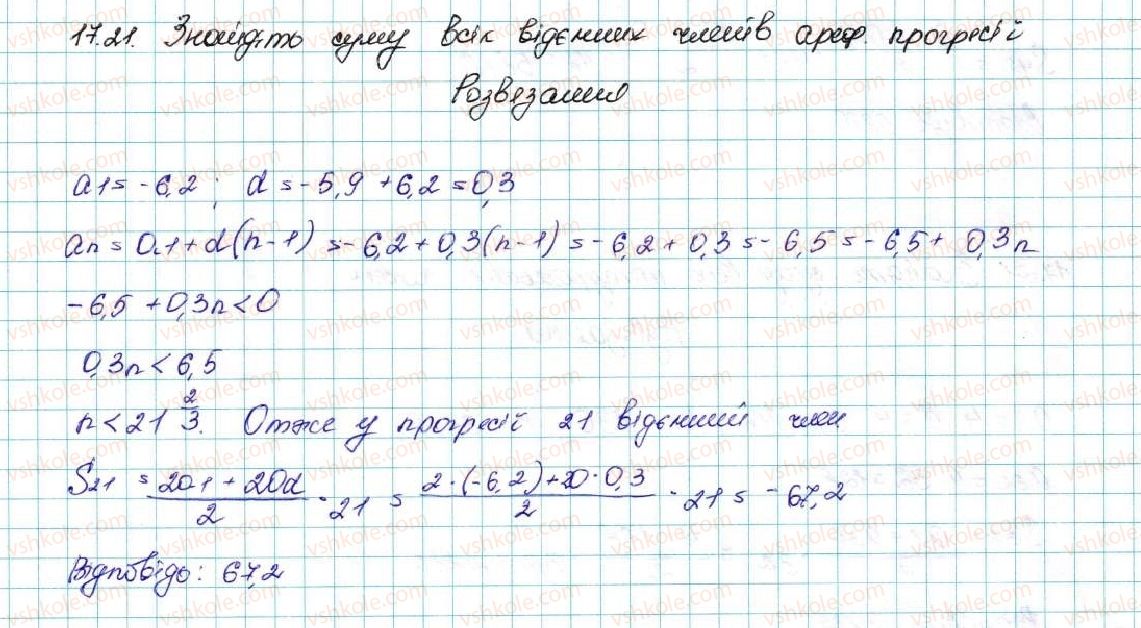 17.21. Знайдіть суму всіх відємних членів ариф. прогресії
Розвязання
a1 = -6,2; d = -5,9 + 6,2 = 0,3
an = a1 + d(n-1) = -6,2 + 0,3(n-1) = -6,2 + 0,3 = -6,5 = -6,5 + 0,3n
-6,5 + 0,3n < 0
0,3n < 6,5
n < 21 2/3. Отже у прогресії 21 відємний член
S21 = (2a1 + 20d)/2 · 21 = (2·(-6,2)+20·0,3)/2 · 21 = -67,2
Відповідь: 67,2